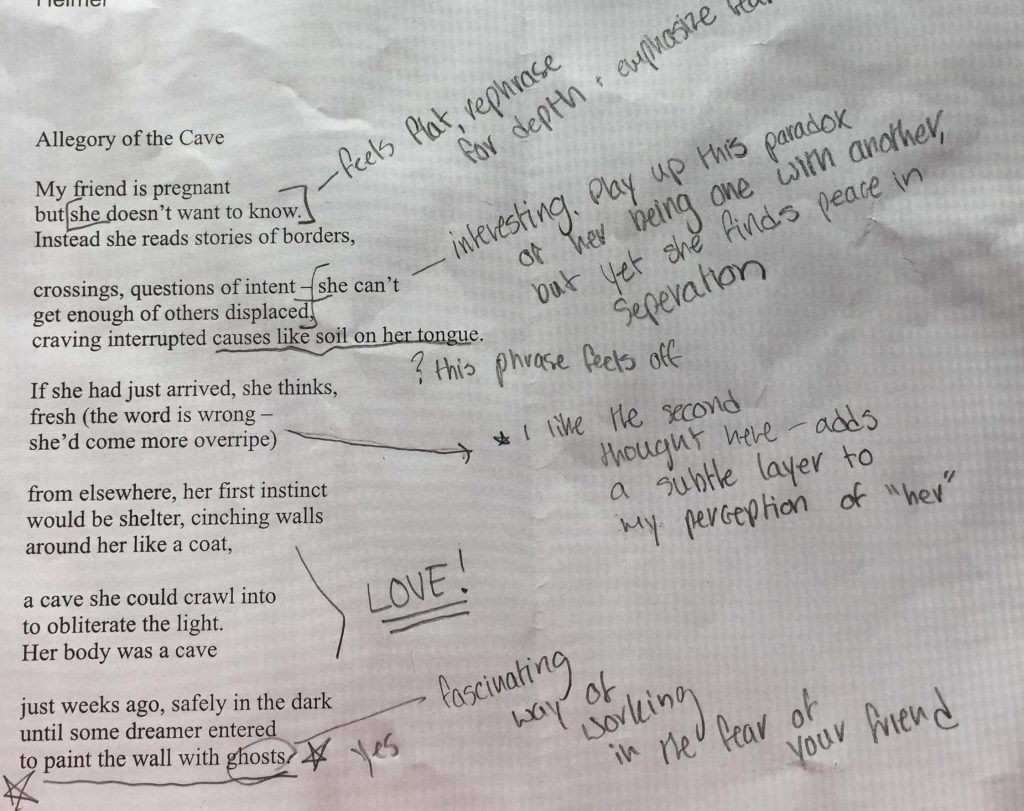 Helmer
Allegory of the Cave
My friend is pregnant
but she doesn't want to know.
Instead she reads stories of borders,
feels flat, rephrase
for depth + emphasize
crossings, questions of intent – she can't
get enough of others displaced,
craving interrupted causes like soil on her tongue.
interesting. Play up this paradox
of her being one with another,
but yet she finds peace in
seperation
? this phrase feels off
If she had just arrived, she thinks,
fresh (the word is wrong –
she'd come more overripe)
* I like the second
thought here – adds
a subtle layer to
my perception of "her"
from elsewhere, her first instinct
would be shelter, cinching walls
around her like a coat,
a cave she could crawl into
to obliterate the light.
Her body was a cave
LOVE!
just weeks ago, safely in the dark
until some dreamer entered
to paint the wall with ghosts.
yes
fascinating
way of
working
in the fear of
your friend